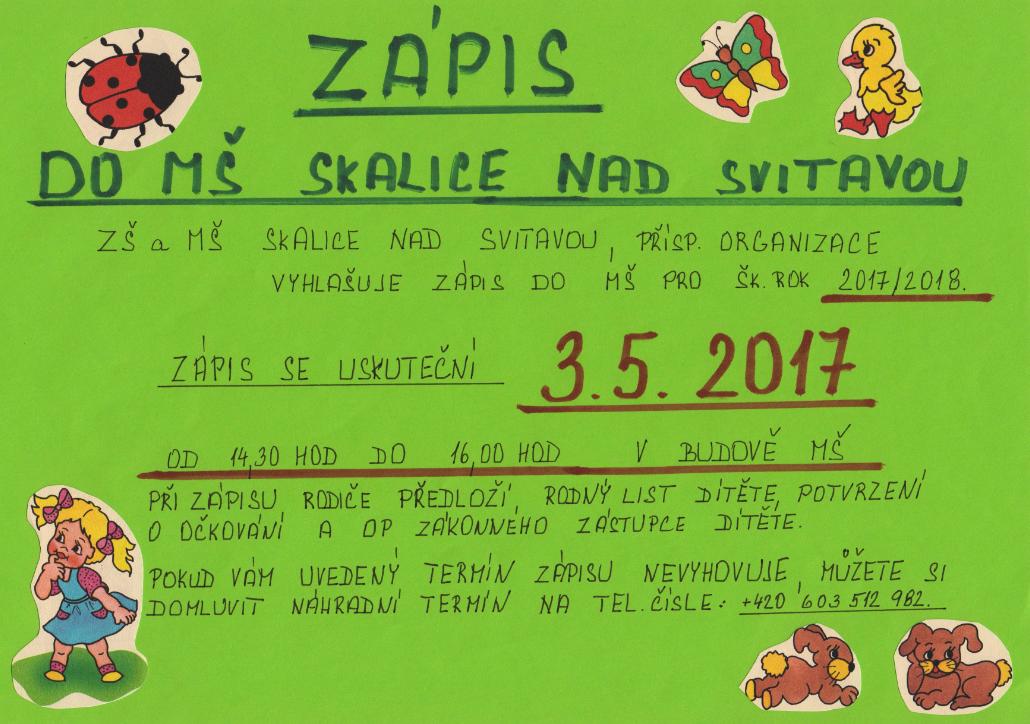 ZÁPIS
DO MŠ SKALICE NAD SVITAVOU
ZŠ a MŠ SKALICE NAD SVITAVOU, PŘÍSP. ORGANIZACE
VYHLAŠUJE ZÁPIS DO MŠ PRO ŠK. ROK 2017/2018.
ZÁPIS SE USKUTEČNÍ 3.5. 2017
OD 14,30 HOD DO 16,00 HOD V BUDOVĚ MŠ
PŘI ZÁPISU RODIČE PŘEDLOŽÍ, RODNÝ LIST DÍTĚTE, POTVRZENÍ
O OČKOVÁNÍ A OP ZÁKONNÉHO ZÁSTUPCE DÍTĚTE.
POKUD VÁM UVEDENÝ TERMÍN ZÁPISU NEVYHOVUJE, MŮŽETE SI
DOMLUVIT NÁHRADNÍ TERMÍN NA TEL. ČÍSLE: +420 603 512 982.